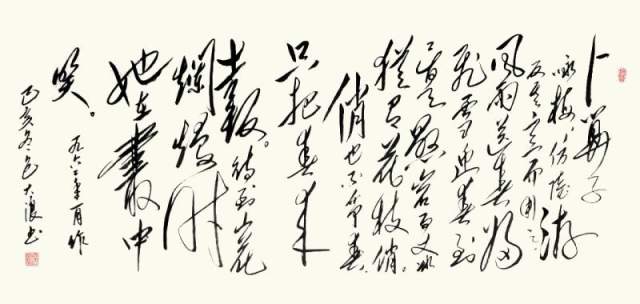 卜算子
咏梅、仿陆游
反其意而用之
风雨送春归
飞雪迎春到
已是悬岩百丈冰
犹有花枝俏。
俏也不争春
只把春来
报。待到山花
烂熳时
她在丛中
笑。
九六一年 月作
己亥冬 大浪书